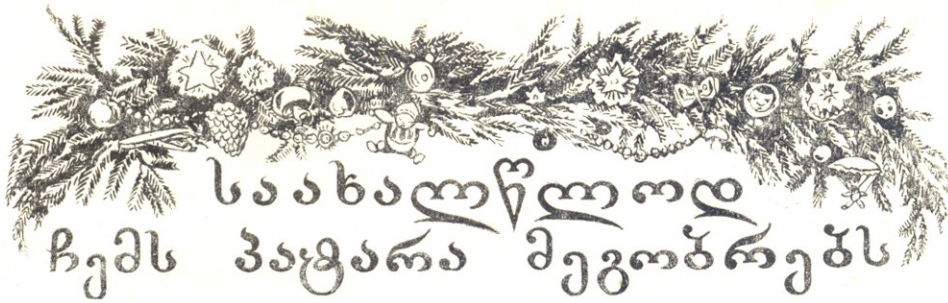 საახალწლოდ
ჩემს პატარა მეგობრებს